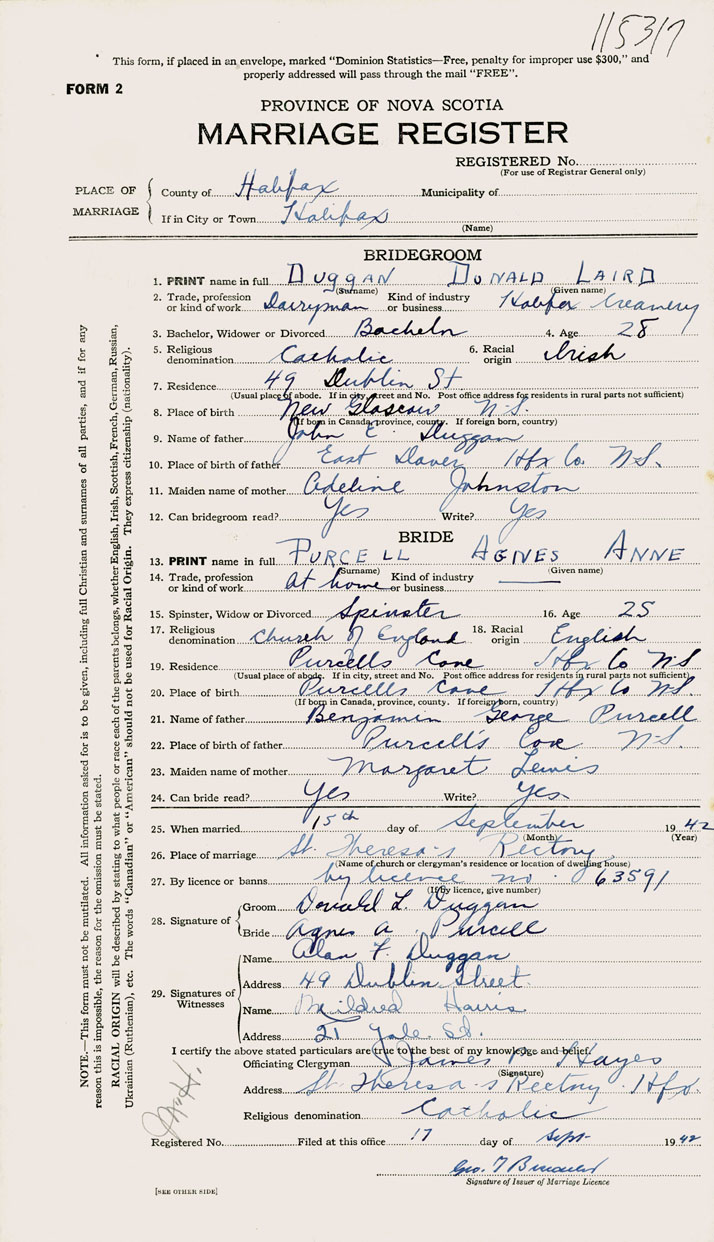 115317
This form, if placed in an envelope, marked "Dominion Statistics—Free, penalty for improper use $300," and
properly addressed will pass through the mail "FREE".
FORM 2
PROVINCE OF NOVA SCOTIA
MARRIAGE REGISTER
REGISTERED No.
(For use of Registrar General only)
PLACE OF MARRIAGE
County of Halifax Municipality of
If in City or Town Halifax
(Name)
BRIDEGROOM
1. PRINT name in full DUGGAN DONALD LAIRD
(Surname) (Given name)
2. Trade, profession or kind of work Dairyman Kind of industry or business Halifax Creamery
3. Bachelor, Widower or Divorced Bachelor 4. Age 28
5. Religious denomination Catholic 6. Racial origin Irish
7. Residence 49 Dublin St
(Usual place of abode. If in city, street and No. Post office address for residents in rural parts not sufficient)
8. Place of birth New Glascow N.S.
(If born in Canada, province, county. If foreign born, country)
9. Name of father John E. Duggan
10. Place of birth of father East Dover Hfx Co. N.S.
11. Maiden name of mother Adeline Johnston
12. Can bridegroom read? Yes Write? Yes
BRIDE
13. PRINT name in full PURCELL AGNES ANNE
(Surname) (Given name)
14. Trade, profession or kind of work at home Kind of industry or business
15. Spinster, Widow or Divorced Spinster 16. Age 25
17. Religious denomination Church of England 18. Racial origin English
19. Residence Purcells Cove Hfx Co N.S
(Usual place of abode. If in city, street and No. Post office address for residents in rural parts not sufficient)
20. Place of birth Purcells Cove Hfx Co N.S.
(If born in Canada, province, county. If foreign born, country)
21. Name of father Benjamin George Purcell
22. Place of birth of father Purcell's Cove N.S.
23. Maiden name of mother Margaret Lewis
24. Can bride read? Yes Write? Yes
25. When married 15th day of September 1942
(Month) (Year)
26. Place of marriage St. Theresa's Rectory
(Name of church or clergyman's residence or location of dwelling house)
27. By licence or banns by licence no. 63591
(If by licence, give number)
28. Signature of
Groom Donald L. Duggan
Bride Agnes A. Purcell
29. Signatures of Witnesses
Name Alan F. Duggan
Address 49 Dublin Street
Name Mildred Harris
Address 21 Yale St.
I certify the above stated particulars are true to the best of my knowledge and belief.
Officiating Clergyman James Hayes
(Signature)
Address St. Theresa's Rectory Hfx.
Religious denomination Catholic
Registered No. Filed at this office 17 day of Sept. 1942
Geo. T
Signature of Issuer of Marriage Licence
[SEE OTHER SIDE]
NOTE.—This form must not be mutilated. All information asked for is to be given, including full Christian and surnames of all parties, and if for any
reason this is impossible, the reason for the omission must be stated.
RACIAL ORIGIN will be described by stating to what people or race each of the parents belongs, whether English, Irish, Scottish, French, German, Russian,
Ukrainian (Ruthenian), etc. The words "Canadian" or "American" should not be used for Racial Origin. They express citizenship (nationality).